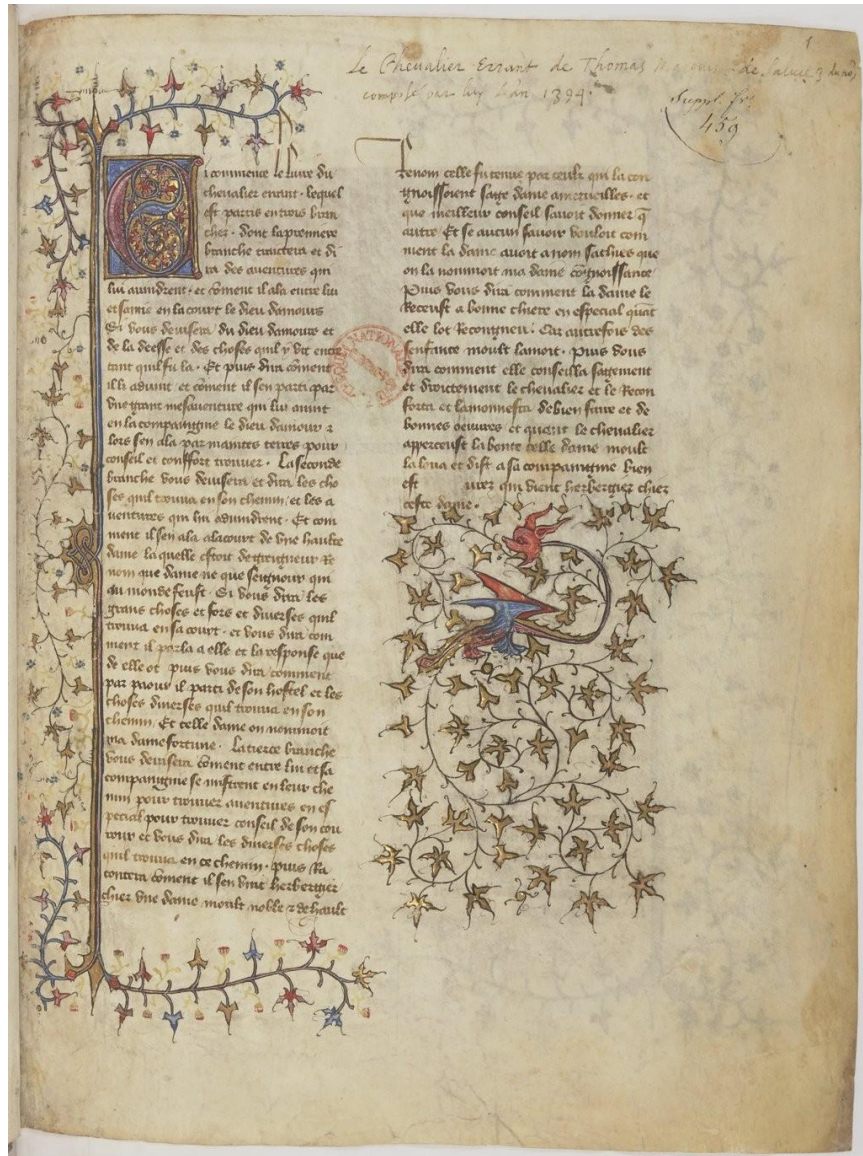 Le Chevalier Errant de Thomas Marquis de Saluces 3 du nom
composé par luy l'an 1394.
1
Suppl. fr.
459
Ci commence le livre du
chevalier errant. lequel
est partis en trois bran
ches. dont la premiere
branche traictera et di
ra des aventures qui
lui avindrent. et cōment il ala entre lui
et samie en la court le dieu damours
Si vous devisera du dieu damours et
de la deesse et des choses quil y vit entre
tant quil fu la. Et puis dira cōment
il li advint et cōment il sen parti par
une grant mesaventure qui lui avint
en la compaingnie le dieu damour ⁊
lors sen ala par maintes terres pour
conseil et conffort trouver. La seconde
branche vous devisera et dira les cho
ses quil trouva en son chemin, et les a
ventures qui lui advindrent. Et com
ment il sen ala a la court de une haulte
dame laquelle estoit de greigneur Re
nom que dame ne que seigneur qui
au monde feust. Si vous dira les
grans choses et fors et diverses quil
trouva en sa court. et vous dira com
ment il parla a elle et la response que
de elle ot puis vous dira comment
par paour il parti de son hostel et les
choses diverses quil trouva en son
chemin. Et celle dame on nommoit
ma dame fortune. La tierce branche
vous devisera cōment entre lui et sa
compaingnie se mistrent en leur che
min pour trouver aventures en es
pecial pour trouver conseil de son cou
rour et vous dira les diverses choses
quil trouva en ce chemin. puis Ra
contera cōment il sen vint herbergier
chiez une dame moult noble ⁊ de hault
Renom celle fu tenue par ceulx qui la con
gnoissoient sage dame a merueilles. et
que meilleur conseil savoit donner q̄
autre Et se aucun savoir vouloit com
ment la dame avoit a nom sachiez que
on la nommoit ma dame cōgnoissance
Puis vous dira comment la dame le
Receust a bonne chiere en especial quāt
elle lot Recongneu. Car autrefois des
senfance moult lamoit. Puis vous
dira comment elle conseilla sagement
et droictement le chevalier et le Recon
forta et lamonnesta de bien faire et de
bonnes oeuvres et quant le chevalier
apperceust la bonte celle dame moult
la loua et dist a sa compaingnie bien
est eurer qui vient herbergier chiez
ceste dame.